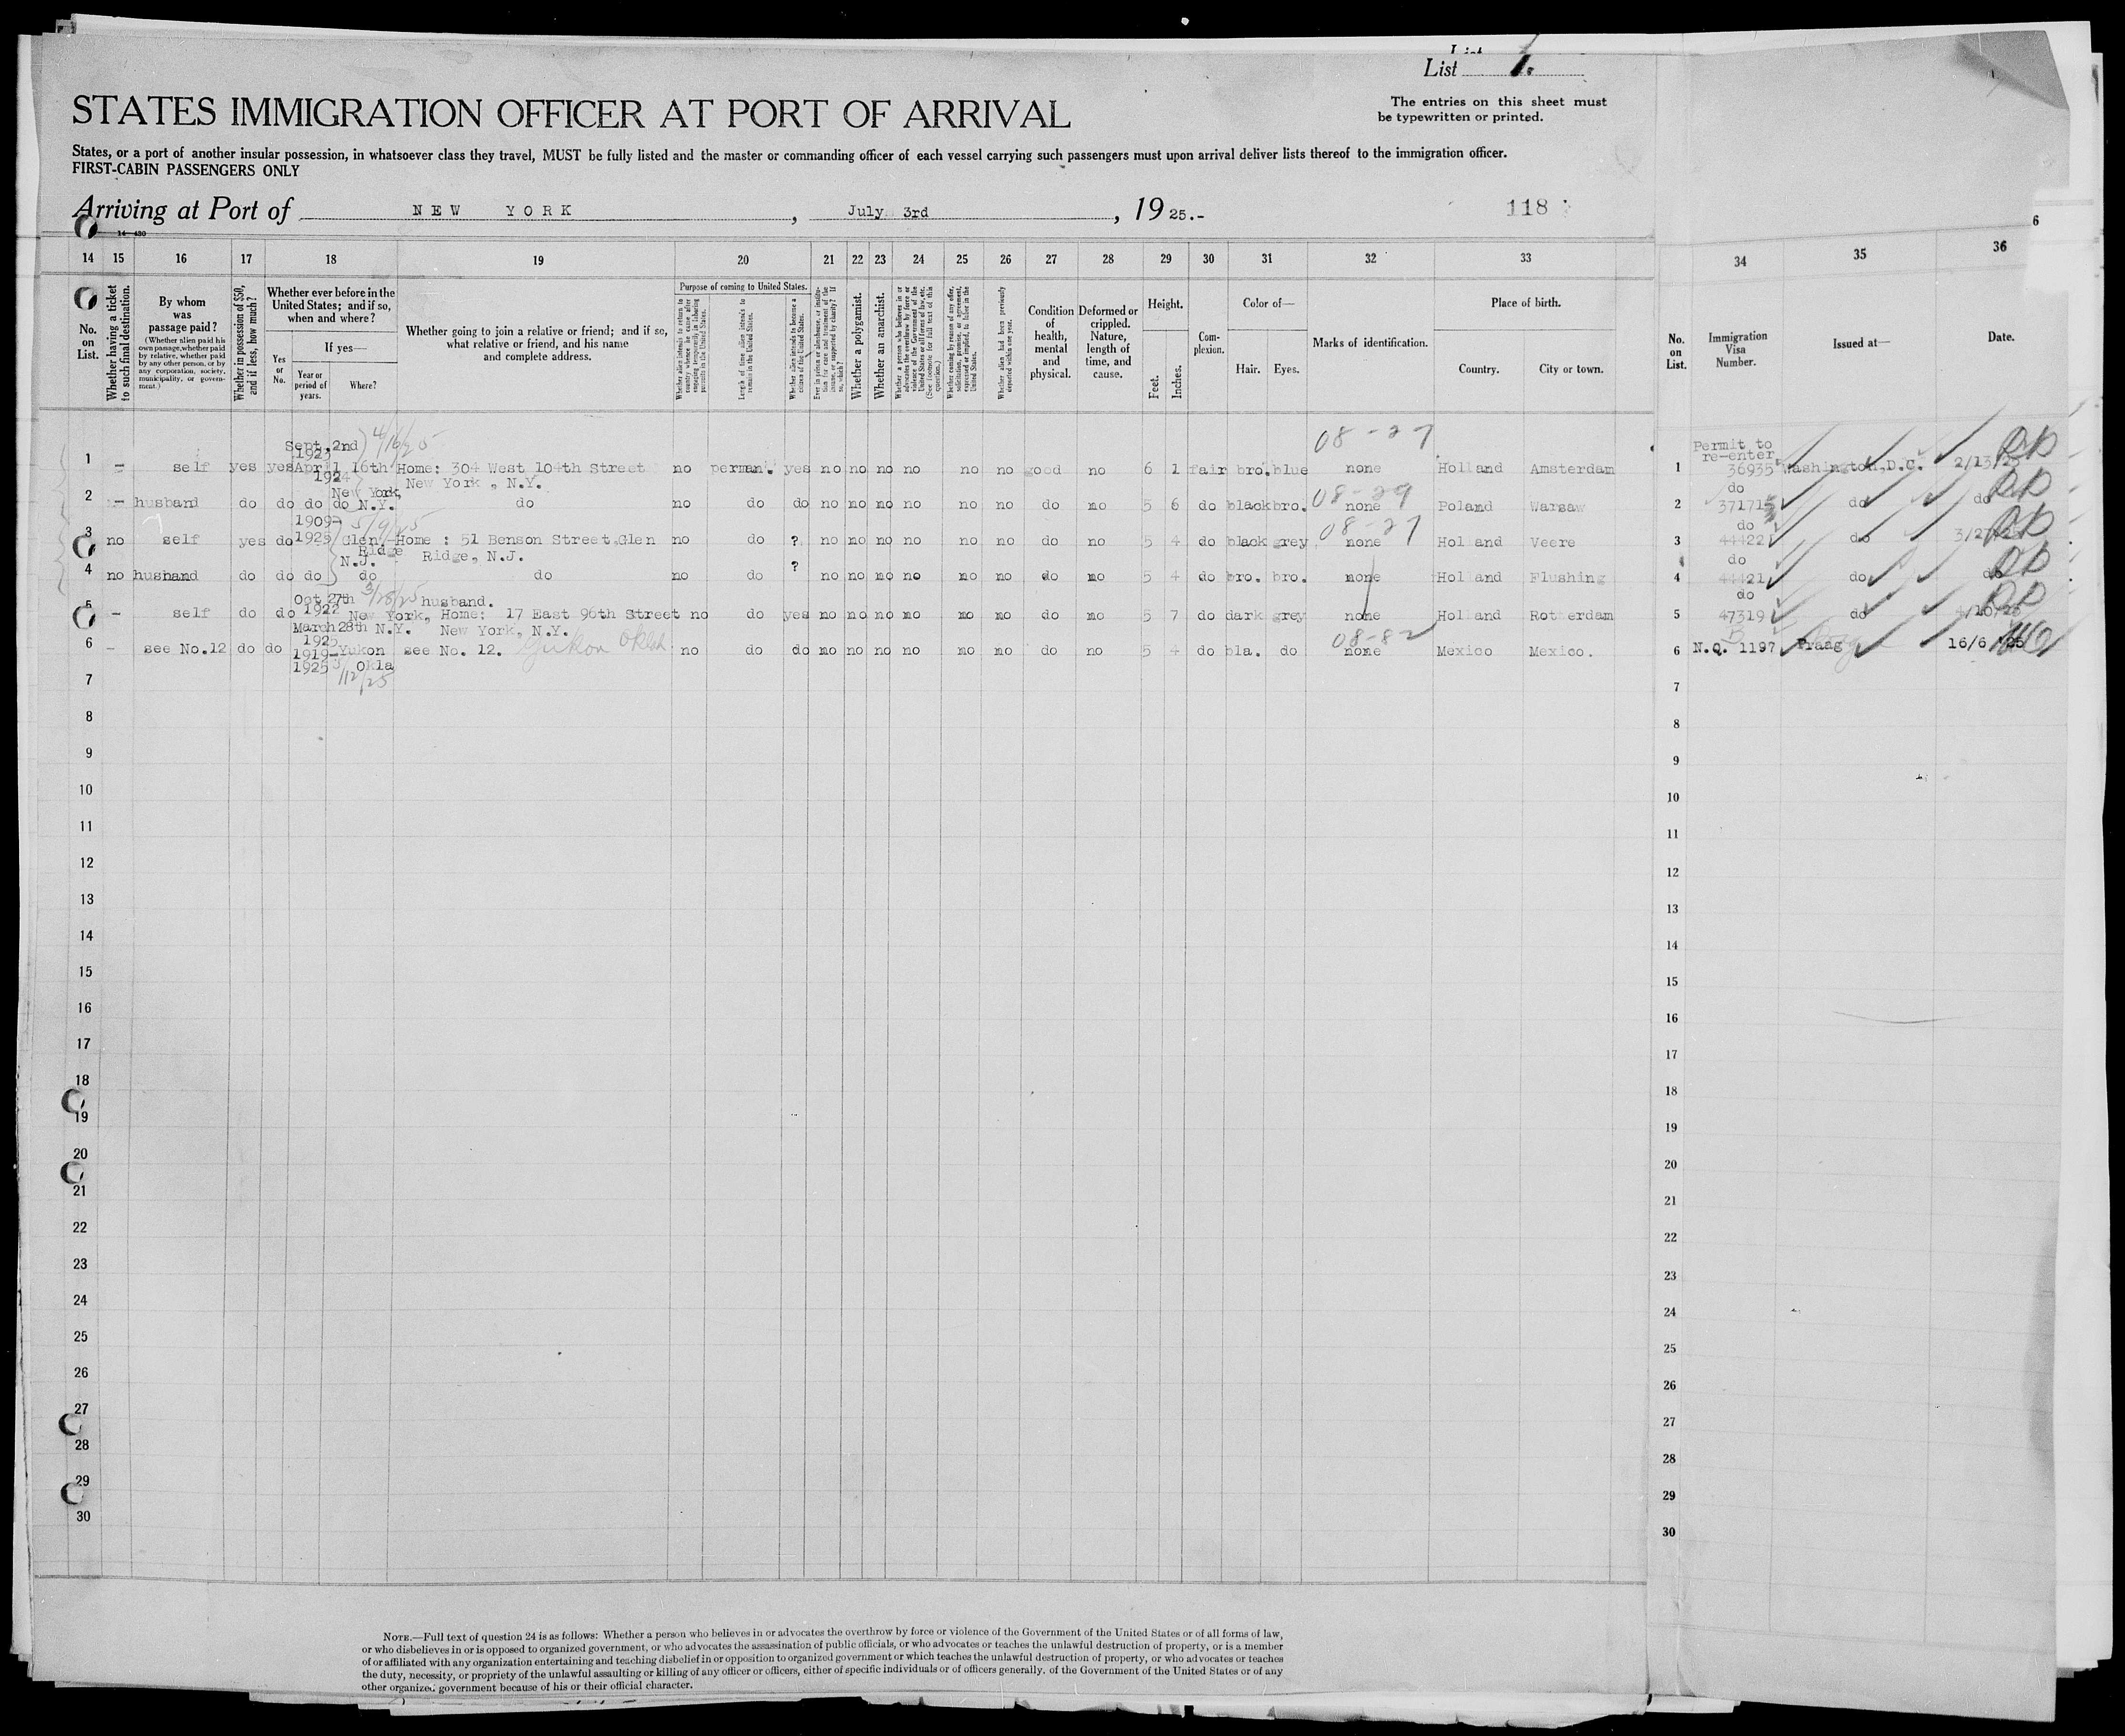 List 1.
STATES IMMIGRATION OFFICER AT PORT OF ARRIVAL
The entries on this sheet must
be typewritten or printed.
States, or a port of another insular possession, in whatsoever class they travel, MUST be fully listed and the master or commanding officer of each vessel carrying such passengers must upon arrival deliver lists thereof to the immigration officer.
FIRST-CABIN PASSENGERS ONLY
Arriving at Port of NEW YORK, July 3rd, 1925.-
118
6
14—430
14 15 16 17 18 19 20 21 22 23 24 25 26 27 28 29 30 31 32 33 34 35 36
No. on List.
Whether having a ticket to such final destination.
By whom was passage paid?
(Whether alien paid his own passage, whether paid by relative, whether paid by any other person, or by any corporation, society, municipality, or government.)
Whether in possession of $50, and if less, how much?
Whether ever before in the United States; and if so, when and where?
Yes or No.
If yes—
Year or period of years.
Where?
Whether going to join a relative or friend; and if so, what relative or friend, and his name and complete address.
Purpose of coming to United States.
Whether alien intends to return to country whence he came after engaging temporarily in laboring pursuits in the United States.
Length of time alien intends to remain in the United States.
Whether alien intends to become a citizen of the United States.
Ever in prison or almshouse, or institution for care and treatment of the insane, or supported by charity? If so, which?
Whether a polygamist.
Whether an anarchist.
Whether a person who believes in or advocates the overthrow by force or violence of the Government of the United States or all forms of law, etc. (See footnote for full text of this question.)
Whether coming by reason of any offer, solicitation, promise, or agreement, expressed or implied, to labor in the United States.
Whether alien had been previously deported within one year.
Condition of health, mental and physical.
Deformed or crippled. Nature, length of time, and cause.
Height.
Feet. Inches.
Complexion.
Color of—
Hair. Eyes.
Marks of identification.
Place of birth.
Country. City or town.
No. on List.
Immigration Visa Number.
Issued at—
Date.
Sept, 2nd 4/16/25 08-27 Permit to
1923 re-enter
1 — self yes yes April 16th Home: 304 West 104th Street no perman. yes no no no no no no good no 6 1 fair bro. blue none Holland Amsterdam 1 36935 Washington, D.C. 2/13/25
1924 New York, N.Y. do
New York, 08-29
2 — husband do do do do N.Y. do no do do no no no no no no do no 5 6 do black bro. none Poland Warsaw 2 371715 do do
1909- 5/9/25 08-27 do
3 no self yes do 1925 Glen Home : 51 Benson Street, Glen no do ? no no no no no no do no 5 4 do black grey none Holland Veere 3 44422 do
Ridge Ridge, N.J. do
N.J. ?
4 no husband do do do do do no do no no no no no no do no 5 4 do bro. bro. none Holland Flushing 4 44421 do do
Oct 27th 3/28/25 husband. do
5 — self do do 1922 New York, Home: 17 East 96th Street no do yes no no no no no no do no 5 7 do dark grey none Holland Rotterdam 5 47319 do 4/10/25
March 28th N.Y. New York, N.Y.
1925 Yukon Okla 08-82
6 — see No.12 do do 1919- Yukon see No. 12. no do do no no no no no no do no 5 4 do bla. do none Mexico Mexico. 6 N.Q. 1197 Praag 16/6 '25
1925 Okla
3/12/25
7 7
8 8
9 9
10 10
11 11
12 12
13 13
14 14
15 15
16 16
17 17
18 18
19 19
20 20
21 21
22 22
23 23
24 24
25 25
26 26
27 27
28 28
29 29
30 30
NOTE.—Full text of question 24 is as follows: Whether a person who believes in or advocates the overthrow by force or violence of the Government of the United States or of all forms of law,
or who disbelieves in or is opposed to organized government, or who advocates the assassination of public officials, or who advocates or teaches the unlawful destruction of property, or is a member
of or affiliated with any organization entertaining and teaching disbelief in or opposition to organized government or which teaches the unlawful destruction of property, or who advocates or teaches
the duty, necessity, or propriety of the unlawful assaulting or killing of any officer or officers, either of specific individuals or of officers generally, of the Government of the United States or of any
other organized government because of his or their official character.